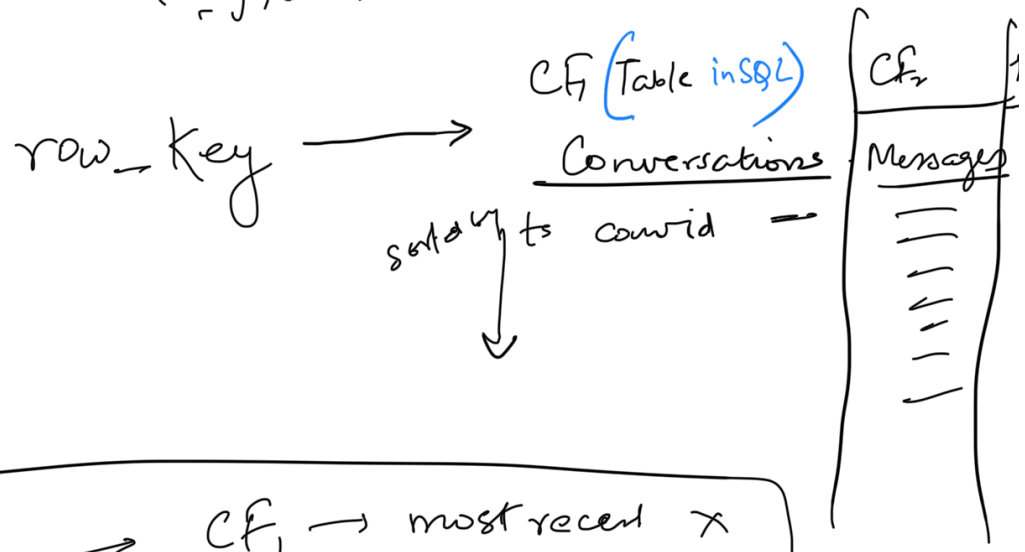 CF1 (Table in SQL)
CF2
row_key
Conversations
Messages
sorted by ts convid
CF1 → most recent X